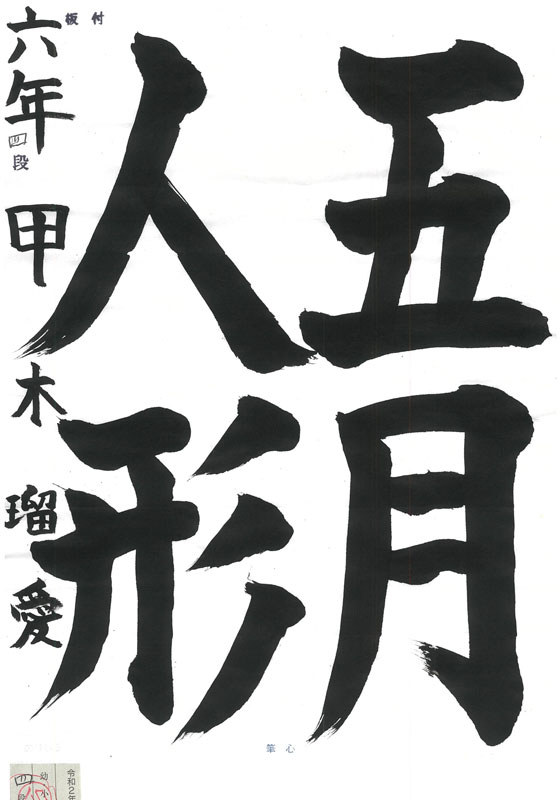 五月
人形
六年 四段 甲木 瑠愛
板付
筆心
令和2年
幼小